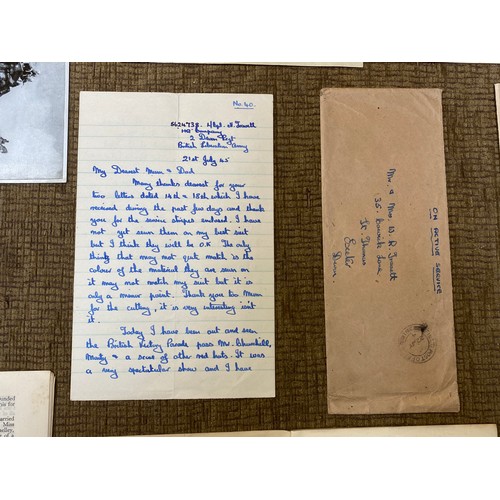 No. 40.
5624738 L/Sgt. Trowett
HQ Company
2 Devon Regt
British Liberation Army
21st July 45
My Dearest Mum & Dad
Many thanks dearest for your
two letters dated 14th & 18th which I have
received during the past few days and thank
you for the service stripes enclosed. I have
not yet sewn them on my best suit
but I think they will be O.K. The only
thing that may not quite match is the
colour of the material they are sewn on
it may not match my suit but it is
only a minor point. Thank you too Mum
for the cutting, it is very interesting isn't
it.
Today I have been out and seen
the British Victory Parade pass Mr. Churchill,
Monty & a score of other red hats. It was
a very spectacular show and I have
ON ACTIVE SERVICE
Mr. & Mrs. R Trowett
35, Lane,
St. Thomas
Exeter
Devon.